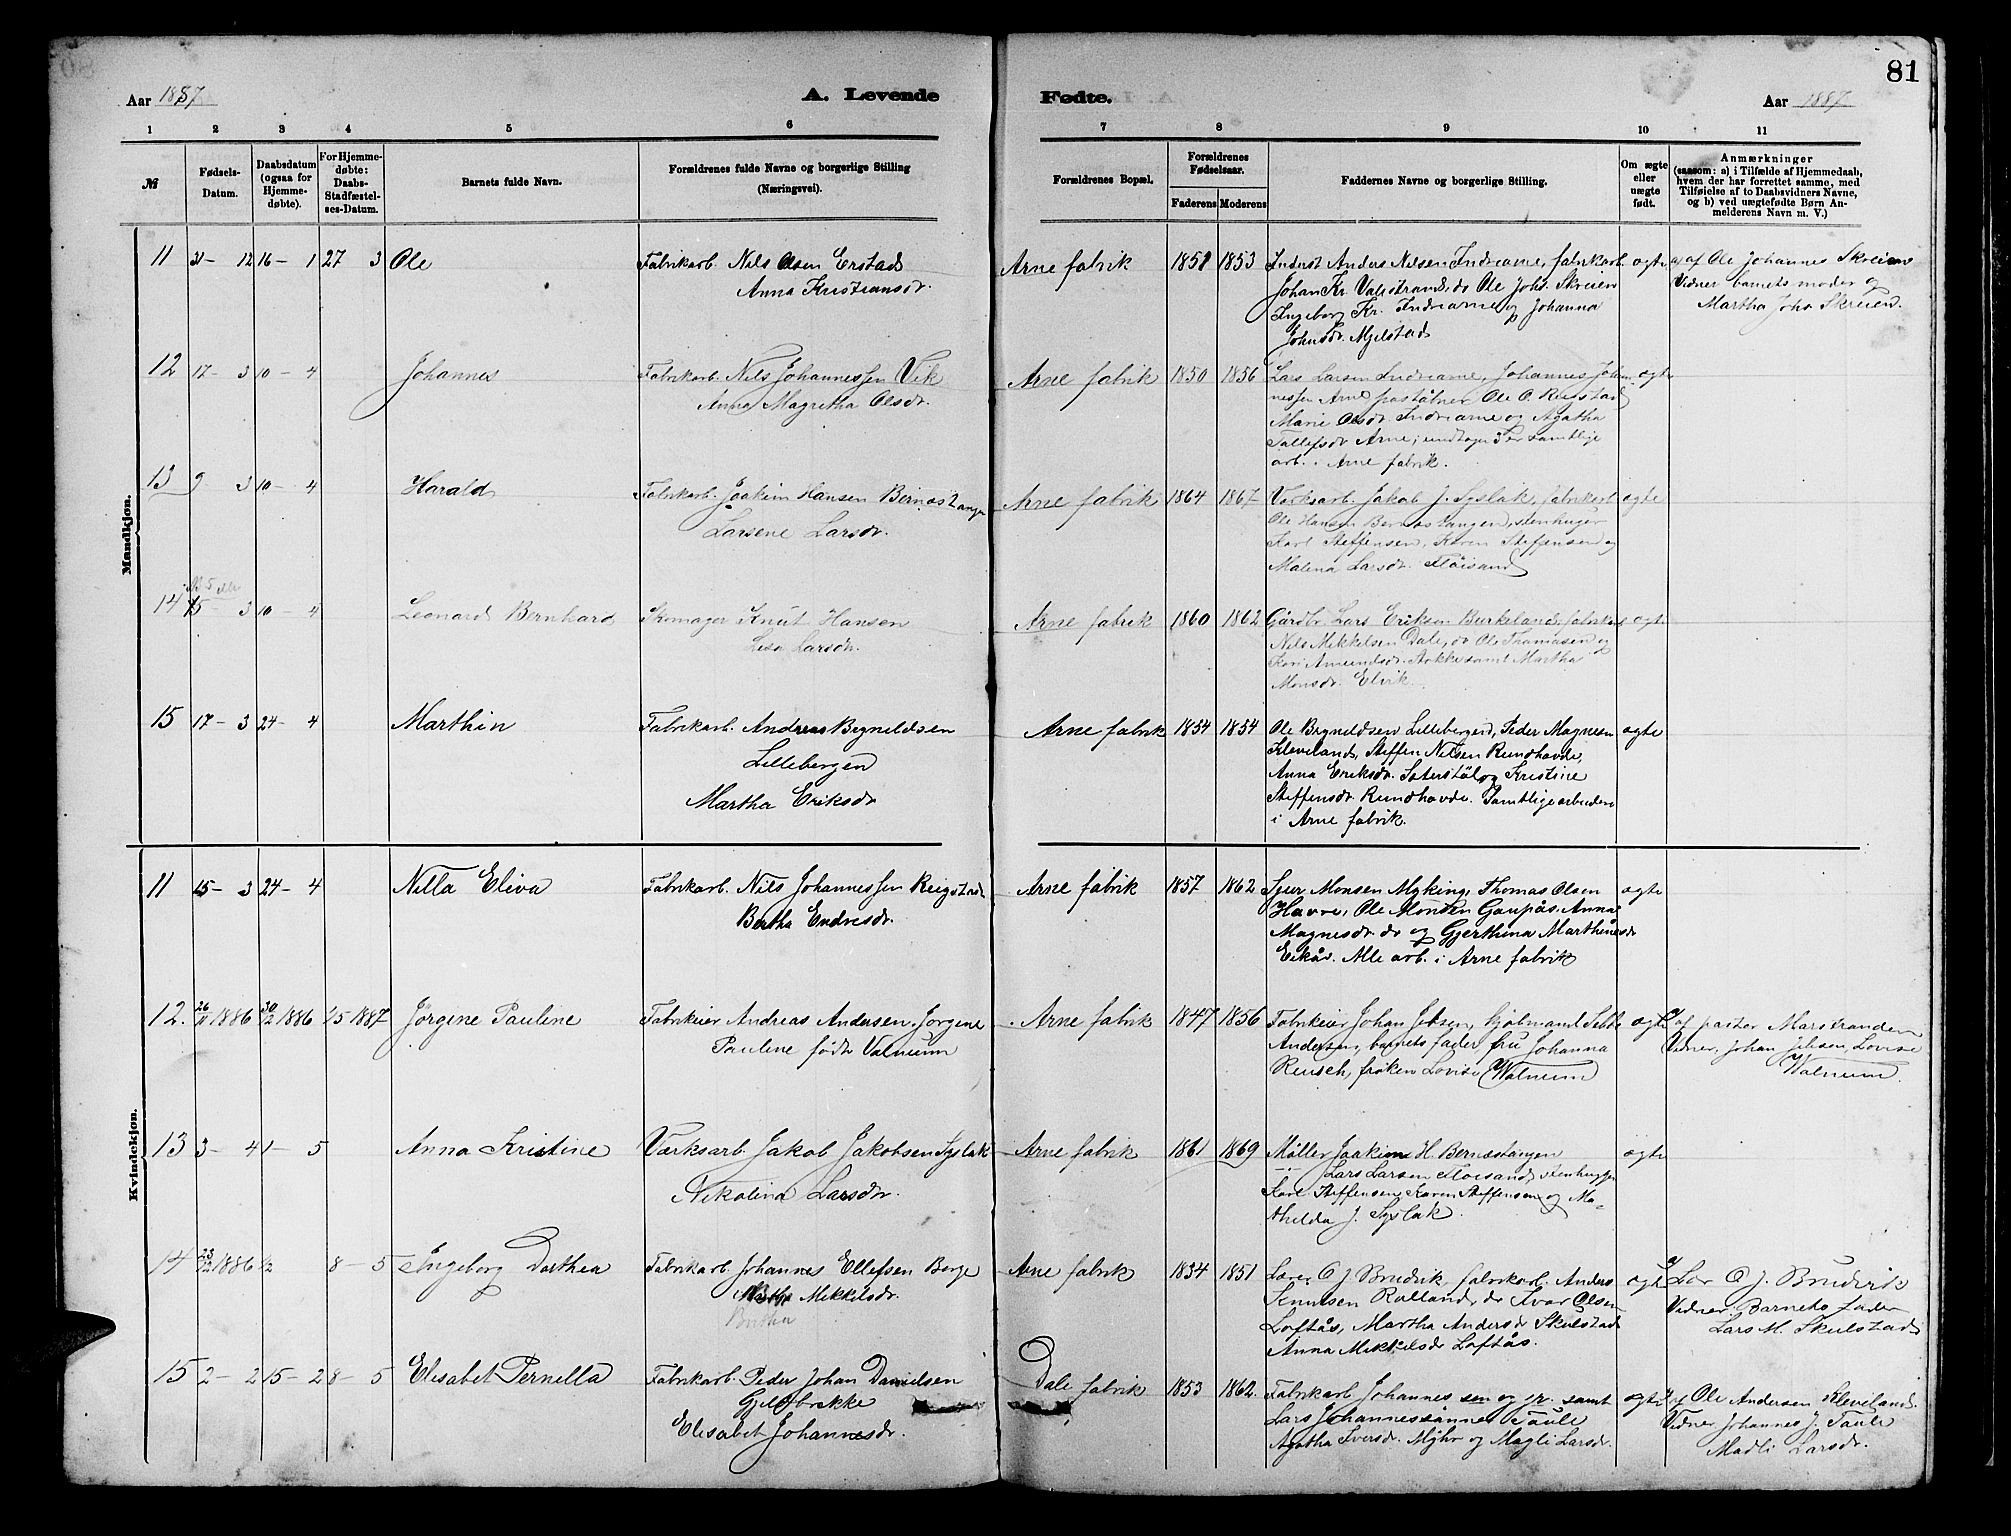 81
Aar 1887
A. Levende
Fødte.
Aar 1887
1 2 3 4 5 6 7 8 9 10 11
№
Fødsels-
Datum.
Daabsdatum
(ogsaa for
Hjemme-
døbte).
For Hjemme-
døbte:
Daabs-
Stadfæstel-
ses-Datum.
Barnets fulde Navn.
Forældrenes fulde Navne og borgerlige Stilling
(Næringsvei).
Forældrenes Bopæl.
Forældrenes
Fødselsaar.
Faderens Moderens
Faddernes Navne og borgerlige Stilling.
Om ægte
eller
uægte
født.
Anmærkninger
(saasom: a) i Tilfælde af Hjemmedaab,
hvem der har forrettet samme, med
Tilføielse af to Daabsvidners Navne,
og b) ved uægtefødte Børn An-
melderens Navn m. V.)
Mandkjøn.
11 31-12 16-1 27 3 Ole
Fabrikarb. Nils Olsen Erstad
Anna Kristiansdr.
Arne fabrik 1851 1853
Inderst Anders Nilsen Indrearne, fabrikarb.
Johan Kr. Valestrand, do Ole Johs. Skreien
Ingeborg Kr. Indrearne og Johanna
Johnsdr. Mjelstad
ægte
a) af Ole Johannes Skreien
Vidner barnets moder og
Martha Johs Skreien.
12 17-3 10-4 Johannes
Fabrikarb. Nils Johannessen Vik
Anna Magretha Olsdr.
Arne fabrik 1850 1856
Lars Larsen Indrearne, Johannes Johan-
nessen Arne, Ole O. Reigstad
Marie Olsdr. Indrearne og Agatha
Tollefsdr Arne; undtagen 3die samtlige
arb. i Arne fabrik.
ægte
13 9 3 10-4 Harald
Fabrikarb. Joakim Hansen Bernestangen
Larsene Larsdr.
Arne fabrik 1864 1867
Værksarb. Jakob J. Syslak, fabrikarb
Ole Hansen Bernestangen, stenhugger
Karl Steffensen, Karen Steffensen og
Malena Larsdr. Fløisand
ægte
14 15-3 10-4 Leonard Bernhard
Skomager Knut Hansen
Lisa Larsdr.
Arne fabrik 1860 1862
Gårdbr Lars Eriksen Burkeland, fabrikarb
Nils Mikkelsen Dale, do Ole Thomasen og
Kari Amundsdr. samt Martha
Monsdr. Elvik.
ægte
15 17-3 24-4 Marthin
Fabrikarb. Andreas Brynildsen
Lillebergen
Martha Eriksdr
Arne fabrik 1854 1854
Ole Brynildsen Lillebergen, Peder Magnesen
Kleveland, Steffen Nilsen Rundhovde,
Anna Eriksdr. Sæterstøl og Kristine
Steffensdr. Rundhovde. Samtlige arbeidere
i Arne fabrik.
ægte
Kvindekjøn.
11 15-3 24-4 Nilla Eliva
Fabrikarb. Nils Johannessen Reigstad
Bertha Endresdr.
Arne fabrik 1857 1862
Sjur Monsen Myking, Thomas Olsen
Havre, Ole Monsen Gaupås, Anna
Magnesdr. do og Gjerthina Marthinesdr
Eikås. Alle arb. i Arne fabrik
ægte
12. 26/11 1886 30/12 1886 15 1887 Jørgine Pauline
Fabrikeier Andreas Andersen, Jørgine
Pauline født Valneum
Arne fabrik 1847 1856
Fabrikeier Johan Jebsen, kjøbmand
Andersen, barnets fader, fru Johanna
Reusch, frøken Lovise Walneum
ægte
a) af pastor Marstrander
Vidner. Johan Jebsen, Lovise
Walneum
13 3-4 1-5 Anna Kristine
Værksarb. Jakob Jakobsen Syslak
Nikolina Larsdr.
Arne fabrik 1861 1869
Møller Joakim H. Bernestangen
Lars Larsen Fløisand, stenhugger
Karl Steffensen, Karen Steffensen og Ma-
thilda J. Syslak.
ægte
14 23/12 1886 1/2 8-5 Ingeborg Dorthea
Fabrikarb. Johannes Ellefsen Berge
Mikkelsdr.
Britha
Arne fabrik 1834 1851
Lærer O J. Brudvik, fabrikarb. Anders
Knutsen Rolland, do Ivar Olsen
Loftås, Martha Andersdr Skulstad
Anna Mikkelsdr Loftås.
ægte
a) Lær O J. Brudvik
Vidner. Barnets fader
Lars M. Skulstad
15 2-2 15-2 8-5 Elisabet Pernilla
Fabrikarb. Peder Johan Danielsen
Gjelbrekke
Elisabet Johannesdr.
Dale fabrik 1853 1862
Fabrikarb Johannes sen og jr. samt
Lars Johannessønner Taule
Agatha Iversdr. Myhr og Magli Larsdr.
ægte
a) af Ole Andersen Kleveland.
Vidner Johannes J. Taule
Madli Larsdr.